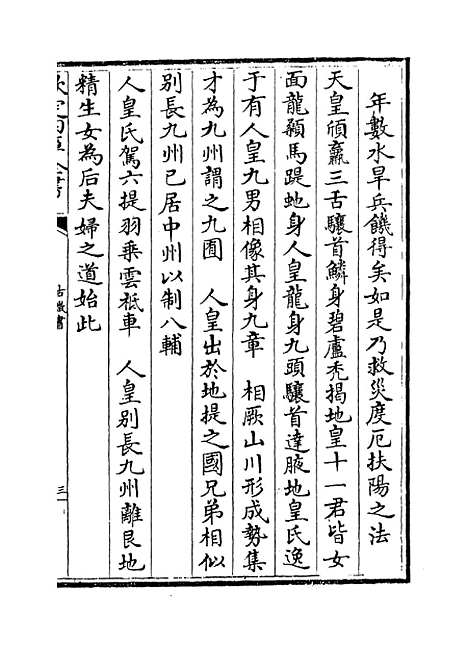 年數水旱兵饑得矣如是乃救災度厄扶陽之法
天皇頎羸三舌驤首鱗身碧盧禿揭地皇十一君皆女
面龍顙馬踶虵身人皇龍身九頭驤首達腋地皇氏逸
于有人皇九男相像其身九章 相厥山川形成勢集
才為九州謂之九囿 人皇出於地提之國兄弟相似
別長九州已居中州以制八輔
人皇氏駕六提羽乘雲祗車 人皇別長九州離艮地
精生女為后夫婦之道始此
欽定四庫全書
古微書
三